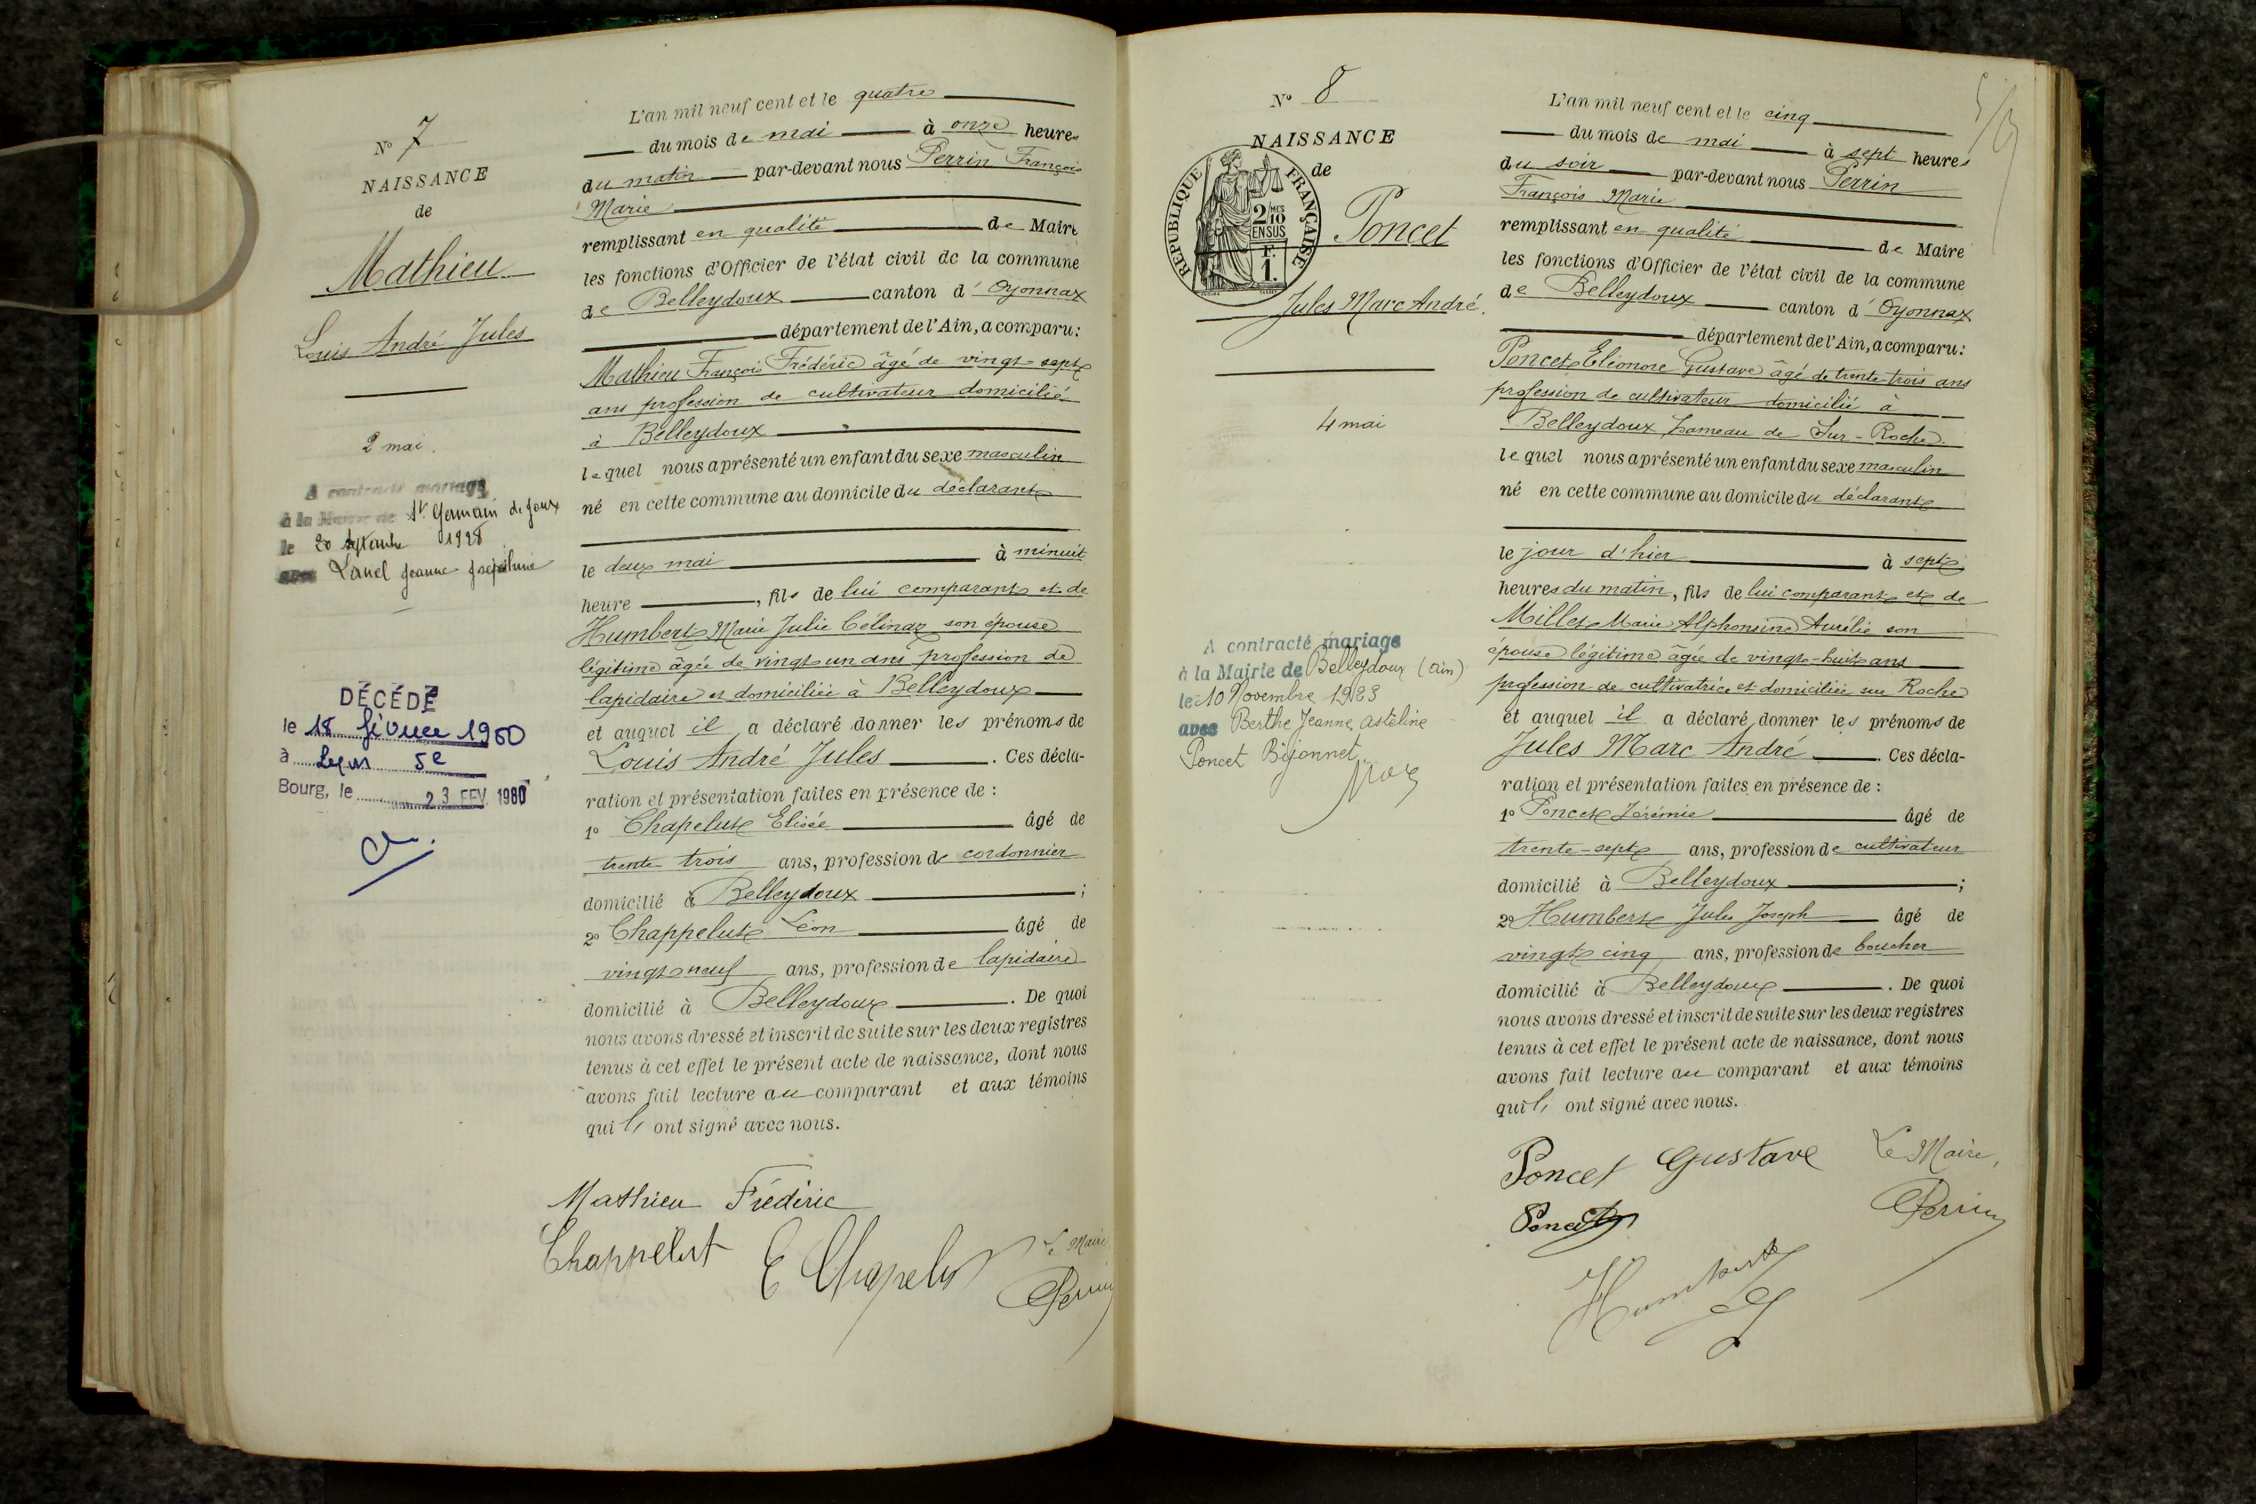 Nº 7
NAISSANCE
de
Mathieu
Louis André Jules
2 mai.
A contracté mariage
à la Mairie de St Germain de Joux
le 20 septembre 1928
avec Lanel Jeanne Joséphine
DÉCÉDÉ
le 18 février 1980
à Lyon 5e
Bourg, le 23 FEV. 1980
L'an mil neuf cent et le quatre
du mois de mai à onze heures
du matin par-devant nous Perrin François
Marie
remplissant en qualité de Maire
les fonctions d'Officier de l'état civil de la commune
de Belleydoux canton d'Oyonnax
département de l'Ain, a comparu:
Mathieu François Frédéric âgé de vingt-sept
ans profession de cultivateur domicilié
à Belleydoux
lequel nous a présenté un enfant du sexe masculin
né en cette commune au domicile du déclarant
le deux mai à minuit
heure , fils de lui comparant et de
Humbert Marie Julie Célinaz son épouse
légitime âgée de vingt un ans profession de
lapidaire et domiciliée à Belleydoux
et auquel il a déclaré donner les prénoms de
Louis André Jules . Ces décla-
ration et présentation faites en présence de :
1º Chapelut Elisée âgé de
trente trois ans, profession de cordonnier
domicilié à Belleydoux ;
2º Chappelut Léon âgé de
vingt neuf ans, profession de lapidaire
domicilié à Belleydoux . De quoi
nous avons dressé et inscrit de suite sur les deux registres
tenus à cet effet le présent acte de naissance, dont nous
avons fait lecture au comparant et aux témoins
qui ls ont signé avec nous.
Mathieu Frédéric
Chappelut E Chapelut Le Maire
Perrin
Nº 8
NAISSANCE
de
RÉPUBLIQUE FRANÇAISE
2 MES
10
EN SUS
F.
1.
Poncet
Jules Marc André.
4 mai
A contracté mariage
à la Mairie de Belleydoux (Ain)
le 10 Novembre 1923
avec Berthe Jeanne Asteline
Poncet Bijonnet
L'an mil neuf cent et le cinq
du mois de mai à sept heures
du soir par-devant nous Perrin
François Marie
remplissant en qualité de Maire
les fonctions d'Officier de l'état civil de la commune
de Belleydoux canton d'Oyonnax
département de l'Ain, a comparu:
Poncet Eléonore Gustave âgé de trente-trois ans
profession de cultivateur domicilié à
Belleydoux hameau de Sur-Roche
lequel nous a présenté un enfant du sexe masculin
né en cette commune au domicile du déclarant
le jour d'hier à sept
heures du matin, fils de lui comparant et de
Millet Marie Alphonsine Aurélie son
épouse légitime âgée de vingt-huit ans
profession de cultivatrice et domiciliée sur Roche
et auquel il a déclaré donner les prénoms de
Jules Marc André . Ces décla-
ration et présentation faites en présence de :
1º Poncet Jérémie âgé de
trente-sept ans, profession de cultivateur
domicilié à Belleydoux ;
2º Humbert Jules Joseph âgé de
vingt cinq ans, profession de boucher
domicilié à Belleydoux . De quoi
nous avons dressé et inscrit de suite sur les deux registres
tenus à cet effet le présent acte de naissance, dont nous
avons fait lecture au comparant et aux témoins
qui ls ont signé avec nous.
Poncet Gustave Le Maire,
Poncet Perrin
Humbert